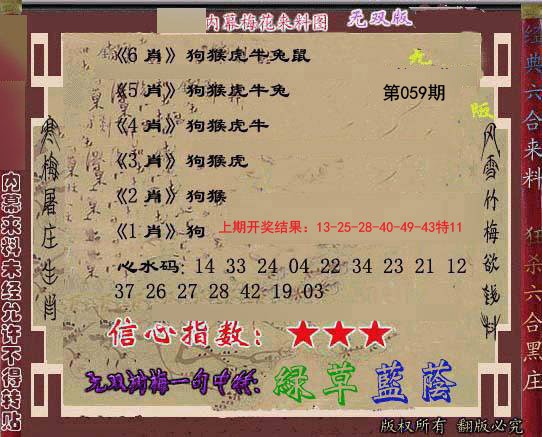 内幕梅花来料图 无双版
《6 肖》狗猴虎牛兔鼠
《5 肖》狗猴虎牛兔
第059期
《4 肖》狗猴虎牛
《3 肖》狗猴虎
《2 肖》狗猴
《1 肖》狗
上期开奖结果：13-25-28-40-49-43特11
心水码：14 33 24 04 22 34 23 21 12
37 26 27 28 42 19 03
信心指数：★★★
中特：綠草藍蔭
版权所有 翻版必究
寒梅屠庄生肖
风雪竹梅欲钱料
内幕来料未经允许不得转贴
经典六合来料
狂杀六合黑庄